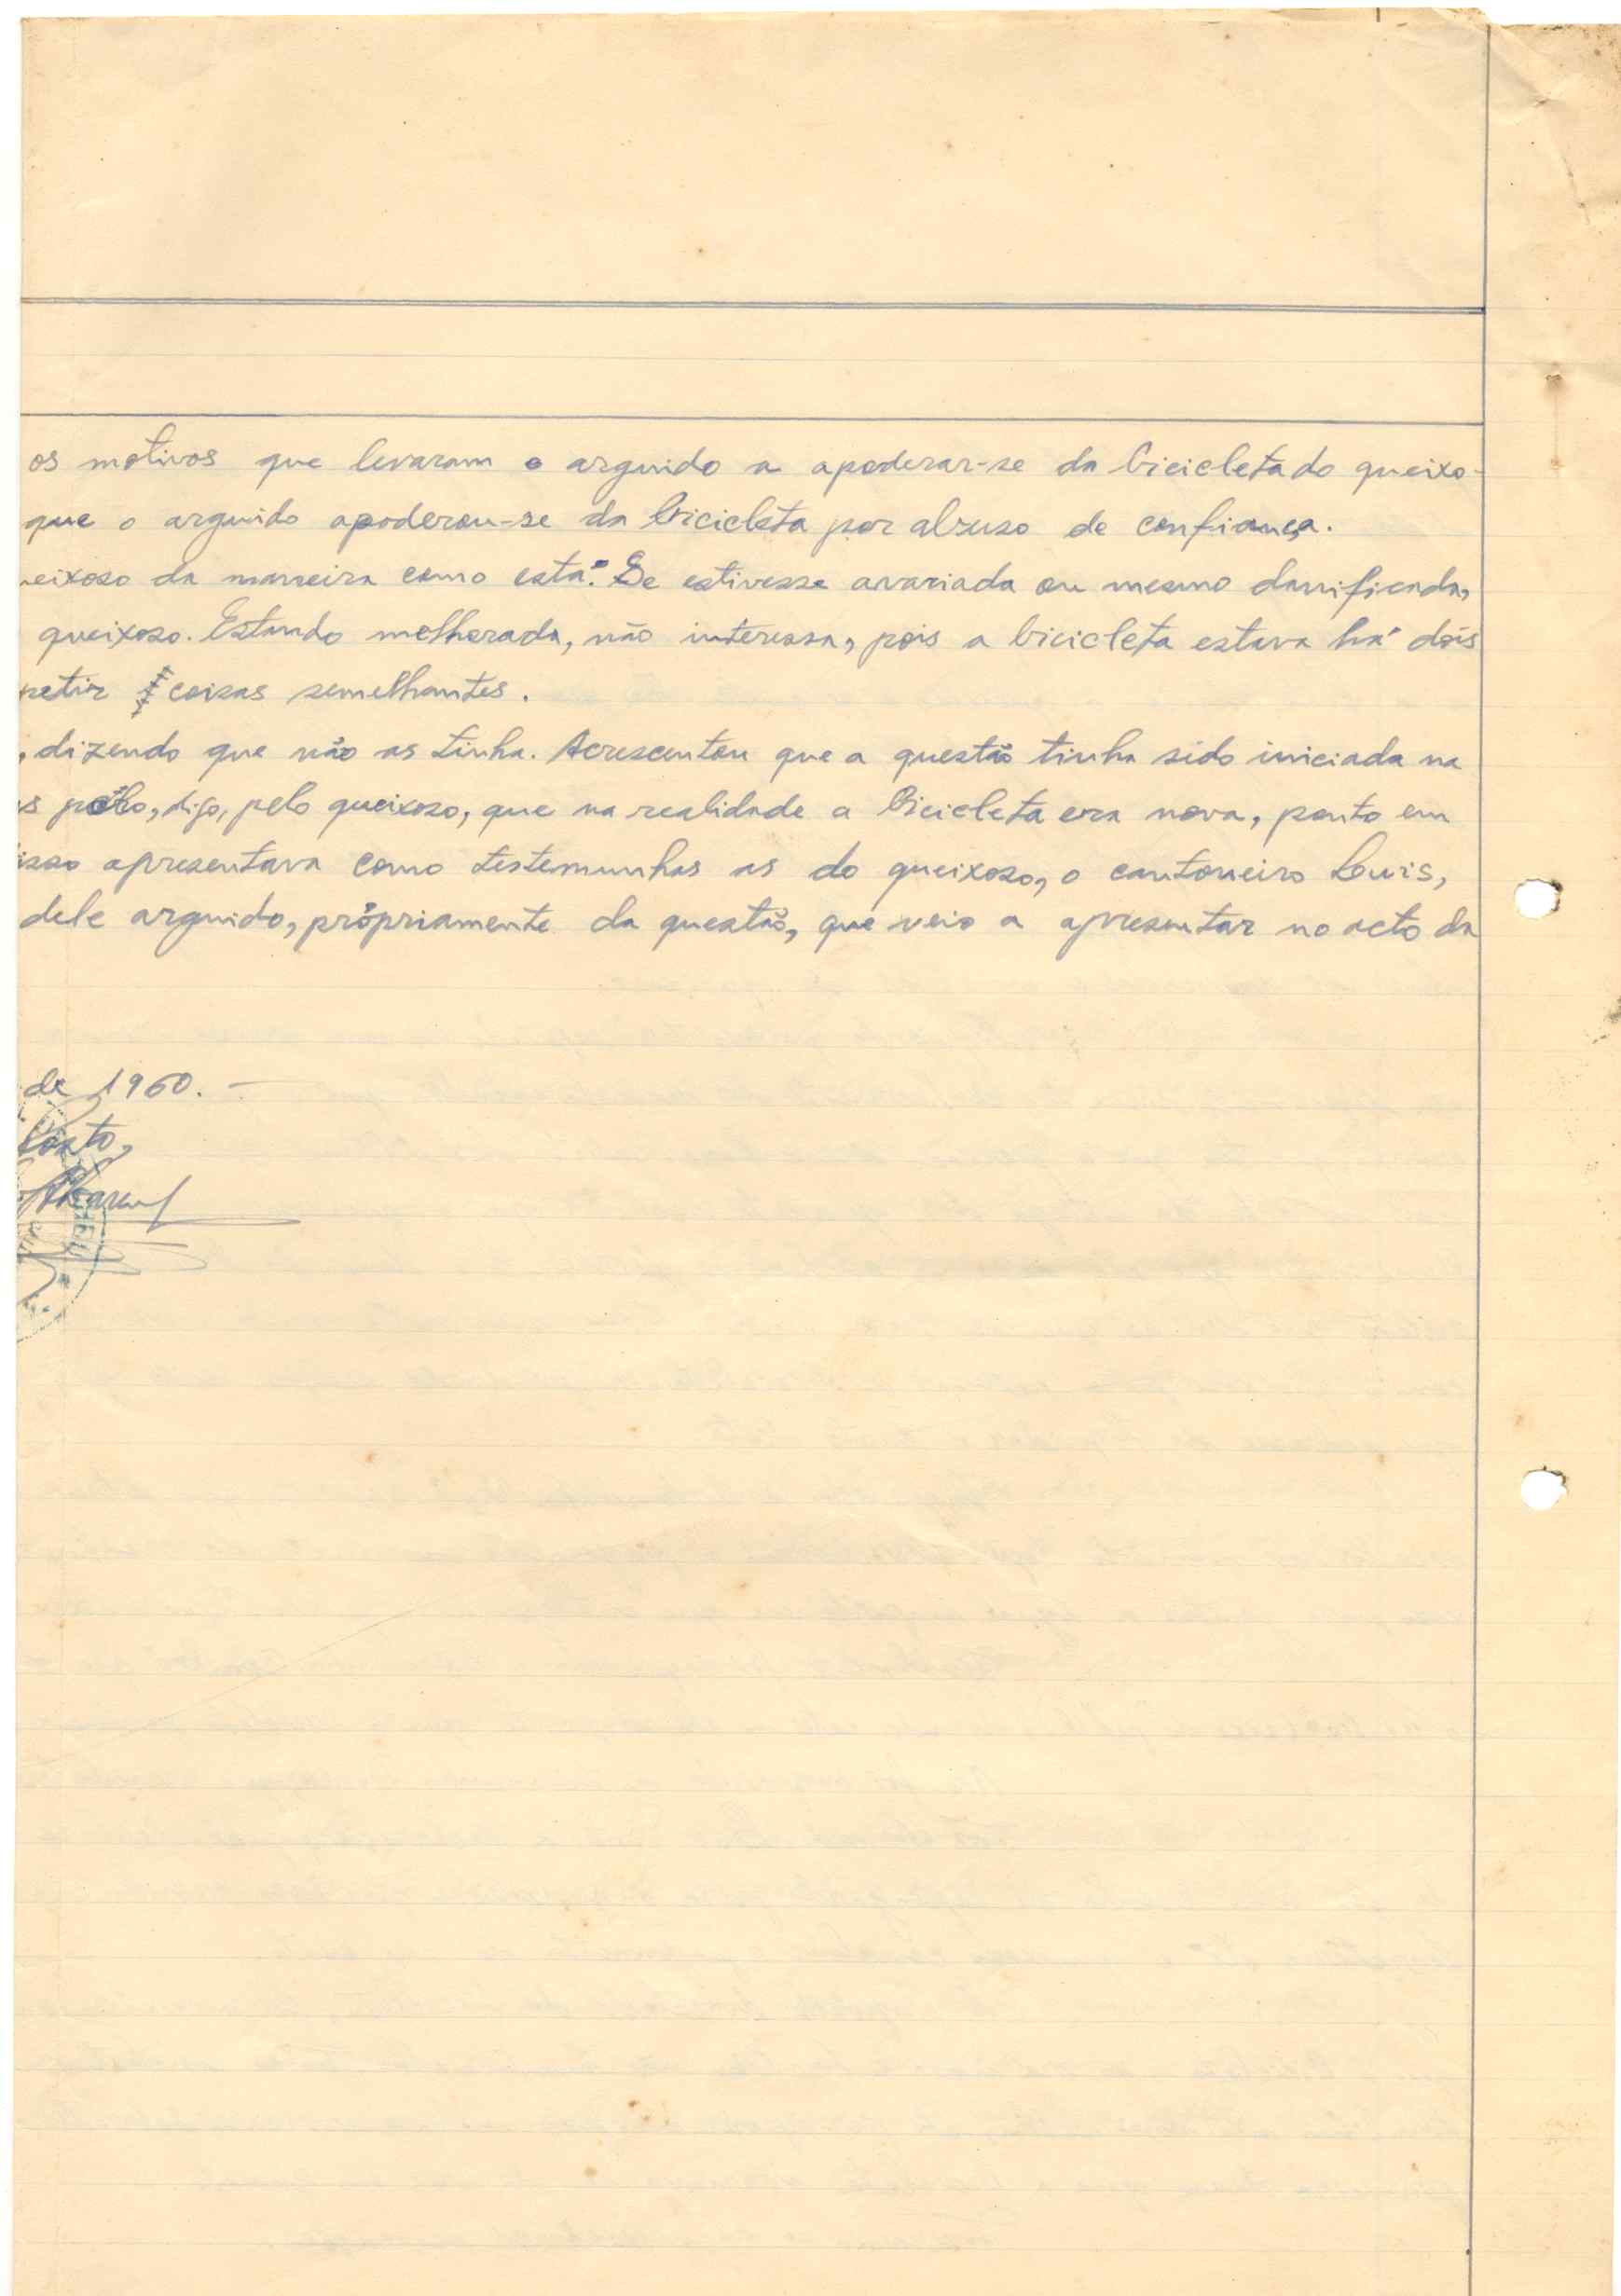 os motivos que levaram o arguido a apoderar-se da bicicleta do queixo-
que o arguido apoderou-se da bicicleta por abuso de confiança.
eixoso da maneira como está. Se estivesse avariada ou mesmo danificada,
queixoso. Estando melhorada, não interessa, pois a bicicleta estava há dois
petir coisas semelhantes.
, dizendo que não as tinha. Acrescentou que a questão tinha sido iniciada na
s pelo, digo, pelo queixoso, que na realidade a bicicleta era nova, ponto em
isso apresentava como testemunhas as do queixoso, o cantoneiro Louis,
dele arguido, pròpriamente da questão, que veio a apresentar no acto da
de 1960. -